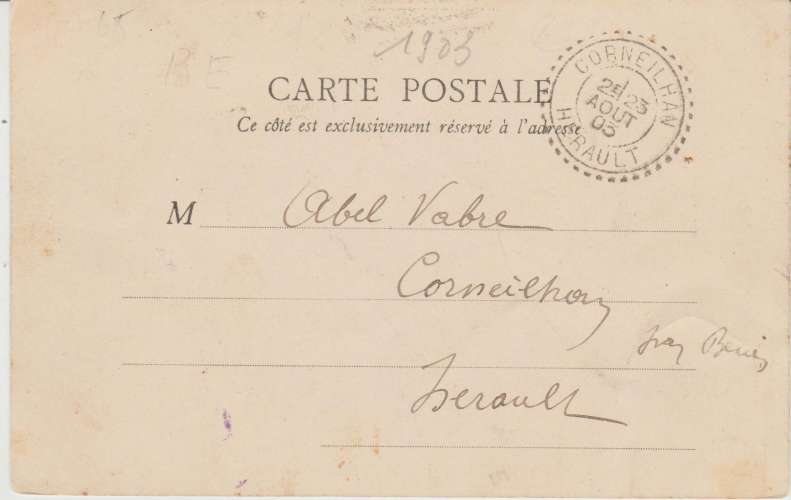 1903
BE
CARTE POSTALE
Ce côté est exclusivement réservé à l'adresse
CORNEILHAN
2E 23
AOUT
03
HERAULT
M Abel Vabre
Corneilhan
Herault